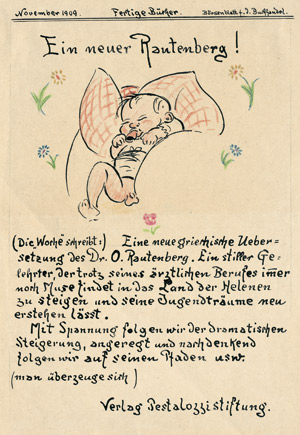 November 1909. Fertige Bücher. Börsenblatt f. d. Buchhandel.
Ein neuer Rautenberg!
(Die Woche schreibt:) Eine neue griechische Ueber-
setzung des Dr. O. Rautenberg. Ein stiller Ge-
lehrter, der trotz seines ärztlichen Berufes im̅er
noch Muse findet in das Land der Helenen
zu steigen und seine Jugendträume neu
erstehen lässt.
Mit Spannung folgen wir der dramatischen
Steigerung, angeregt und nachdenkend
folgen wir auf seinen Pfaden usw.
(man überzeuge sich)
Verlag Pestalozzistiftung.